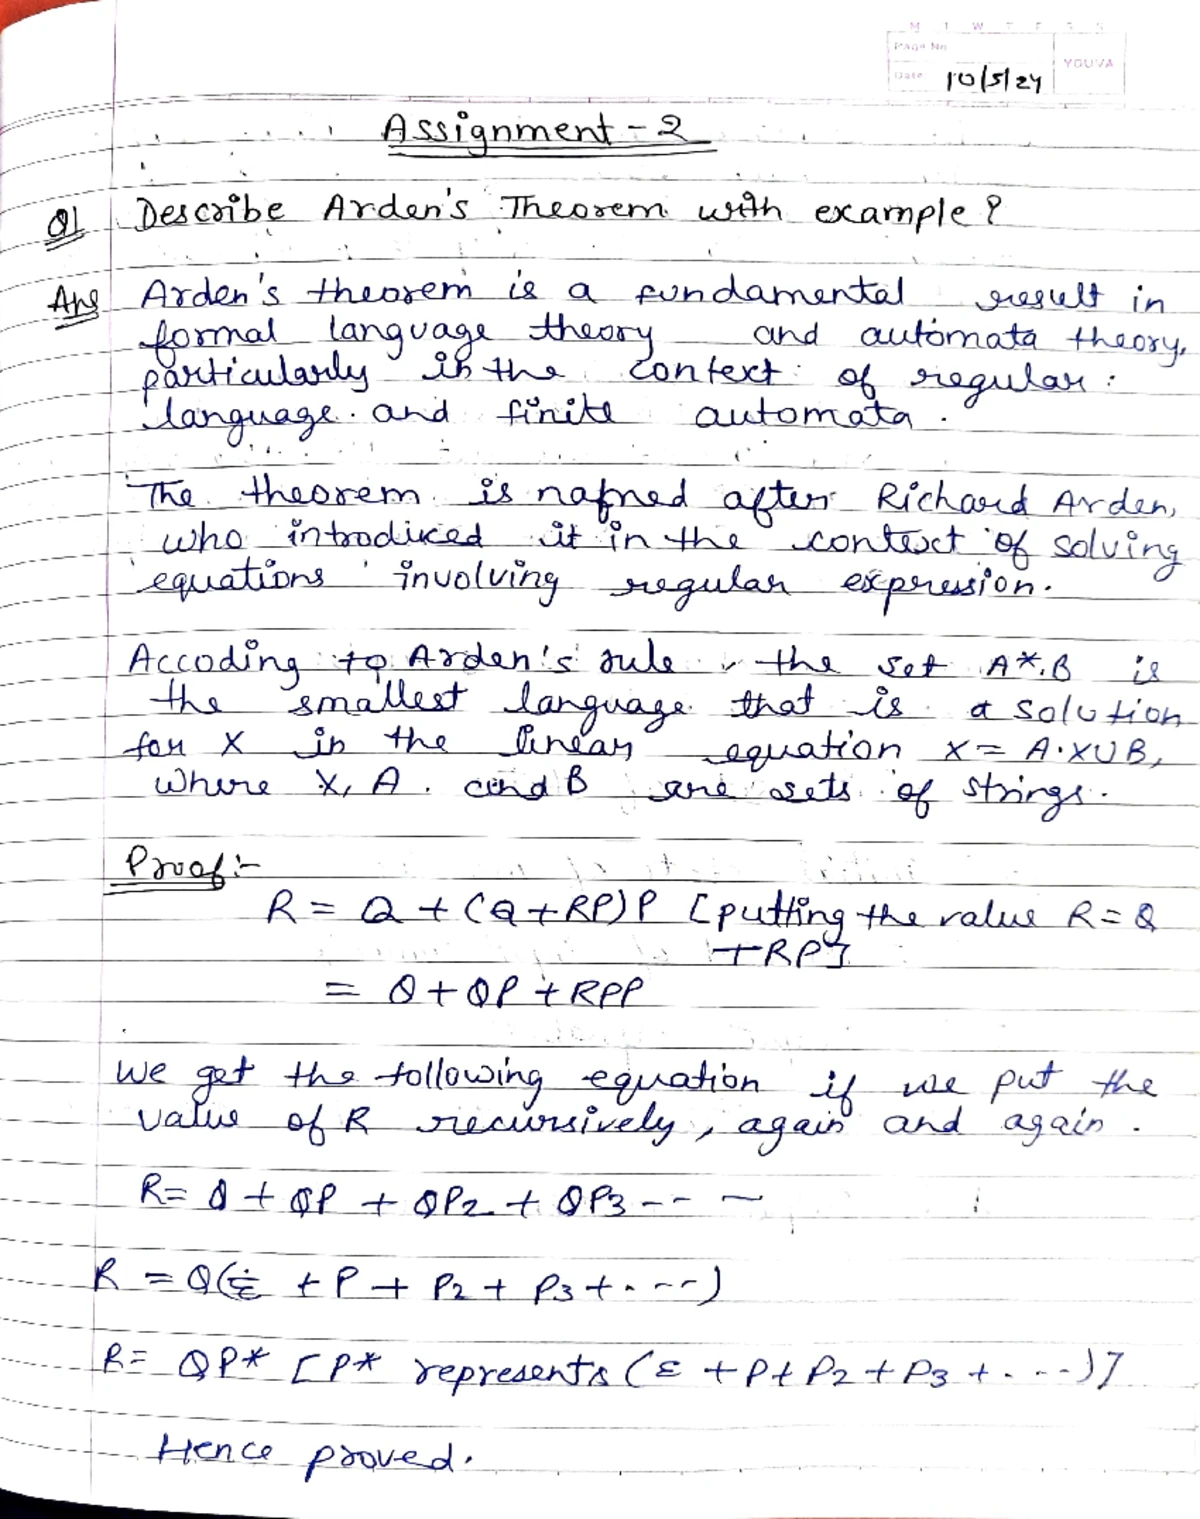 M T W T F S S
Page No
YOUVA
Date 10/5/24
Assignment - 2
Q1 Describe Arden's Theorem with example ?
Ans Arden's theorem is a fundamental result in
formal language theory and automata theory,
particularly in the context of regular
language and finite automata.
The theorem is named after Richard Arden,
who introdiced it in the context of solving
equations involving regular expression.
Accoding to Arden's rule, the set A*.B is
the smallest language that is a solution
for X in the linear equation X = A.XUB,
where X, A. and B are sets of strings.
Proof :-
R = Q + (Q + RP) P [putting the value R = Q
+ RP]
= Q + QP + RPP
We get the following equation if we put the
value of R recursively, again and again.
R = Q + QP + QP2 + QP3 -- -
R = Q(ε + P + P2 + P3 + . ---)
R = QP* [P* represents (ε + P + P2 + P3 + . . --)]
Hence proved.